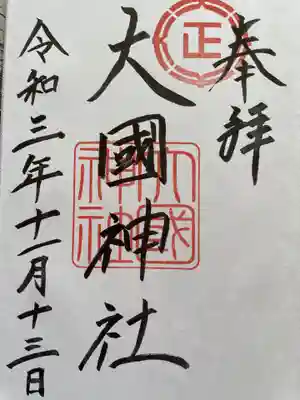 奉拝
正
大國神社
令和三年十一月十三日